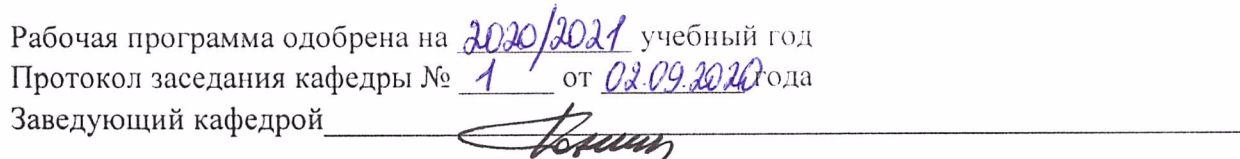 Рабочая программа одобрена на 2020/2021 учебный год
Протокол заседания кафедры № 1 от 02.09.2020 года
Заведующий кафедрой